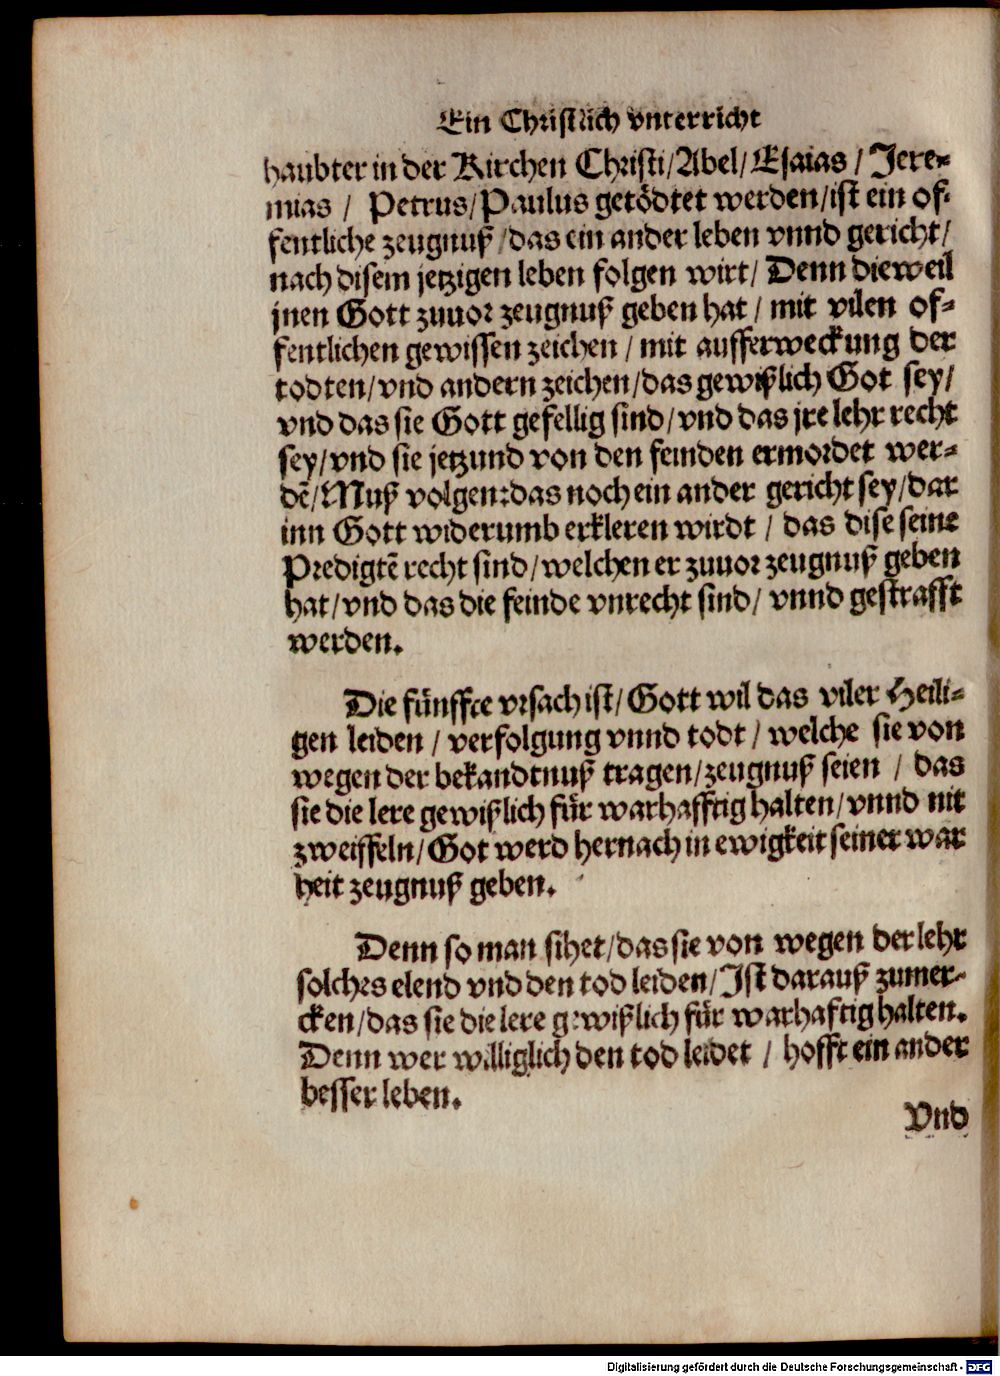 Ein Christlich vnterricht
haubter in der Kirchen Christi/Abel/Esaias/Jere-
mias/ Petrus/Paulus getödtet werden/ist ein of-
fentliche zeugnuß/das ein ander leben vnnd gericht/
nach disem jetzigen leben folgen wirt/Denn dieweil
jnen Gott zuuor zeugnuß geben hat/ mit vilen of-
fentlichen gewissen zeichen/mit aufferweckung der
todten/vnd andern zeichen/das gewißlich Got sey/
vnd das sie Gott gefellig sind/vnd das jre lehr recht
sey/vnd sie jetzund von den feinden ermordet wer-
dẽ/Muß volgen:das noch ein ander gericht sey/dar
inn Gott widerumb erkleren wirdt/ das dise seine
Predigtẽ recht sind/welchen er zuuor zeugnuß geben
hat/vnd das die feinde vnrecht sind/ vnnd gestrafft
werden.
Die fünffte vrsach ist/Gott wil das viler Heili-
gen leiden/verfolgung vnnd todt/welche sie von
wegen der bekandtnuß tragen/zeugnuß seien/das
sie die lere gewißlich für warhafftig halten/vnnd nit
zweiffeln/Got werd hernach in ewigkeit seiner war
heit zeugnuß geben.
Denn so man sihet/das sie von wegen der lehr
solches elend vnd den tod leiden/Ist darauß zumer-
cken/das sie die lere gewißlich für warhaftig halten.
Denn wer williglich den tod leidet/hofft ein ander
besser leben.
Vnd
Digitalisierung gefördert durch die Deutsche Forschungsgemeinschaft - DFG